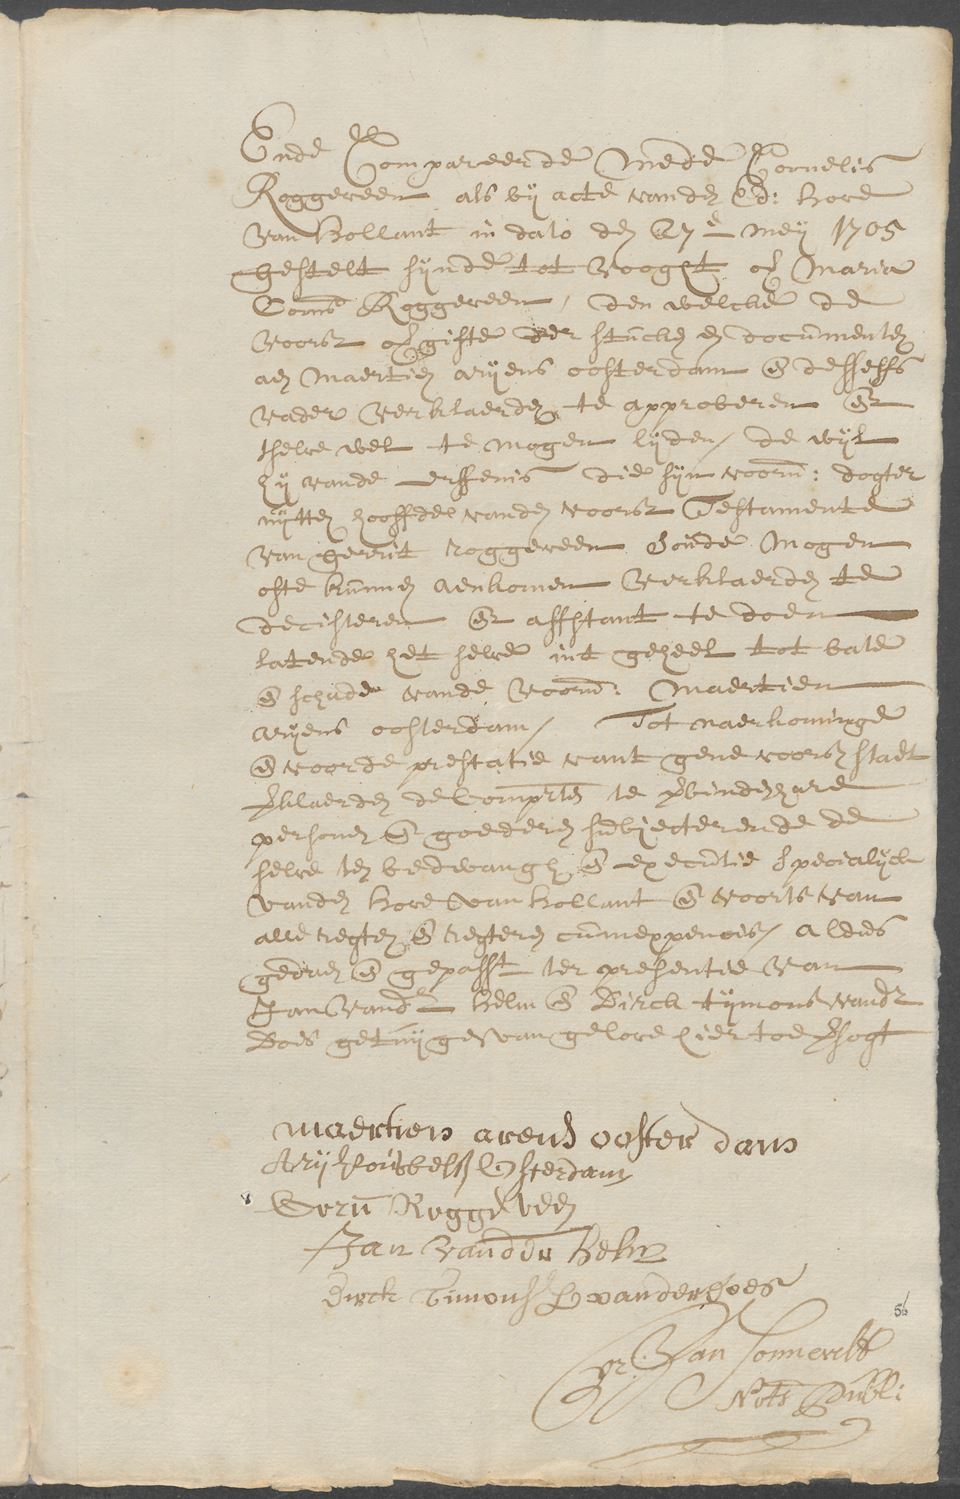 Ende Compareerde mede Cornelis
Roggeveen als bij acte vanden Ed: hove
van Hollant in dato den 27e meij 1705
gestelt sijnde tot vooght of Maria
Corns Roggeveen, den welcke de
voorsz ofgifte der stucken en documenten
aen Maertien arijens oosterdam & desselfs
vader verklaerden te approberen &
tselve wel te mogen lijden, de wijl
hij vande erffenis die sijn voorn: dogter
uijtten hooffde vanden voorsz Testamente
van gerrit roggeveen soude mogen
ofte kunnen aenkomen verklaerden te
decisteren & affstant te doen
latende het selve int geheel tot bate
& schade vande voorn: Maertien
arijens oosterdam, Tot naerkominge
& voorde prestatie vant gene voorsz staet
verklaerden de Comprten te verbinden hare
personen & goederen subjecterende de
selve ten bedwangh & executie specialijck
vanden hove van hollant & voorts van
alle regten & regteren cum expensis, aldus
gedaen & gepasst ter presentie van
Jan vander helm & Dirck tijmons vander
Does getuijge van gelove hier toe versogt
maertien arens ooster dam
Arij Oosterdam
Corn Roggeveen
Jan vander helm
Dirck Timons vander Does
56
van Sonnevelt
Nots Publ: